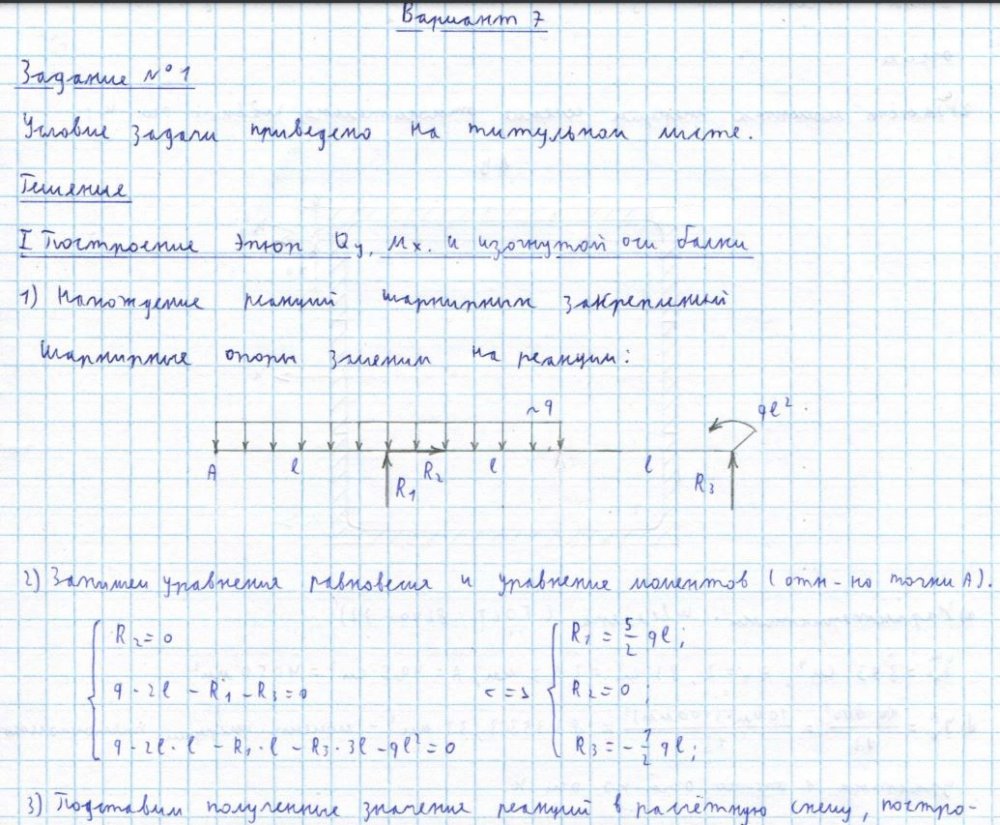 Вариант 7
Задание №1
Условие задачи приведено на титульном листе.
Решение
I Построение эпюр Qy, Mx. и изогнутой оси балки
1) Нахождение реакций шарнирных закреплений
Шарнирные опоры заменим на реакции:
~q
ql².
A
l
R₂
l
l
R₁
R₃
2) Запишем уравнения равновесия и уравнение моментов (отн-но точки A).
R₂ = 0
q·2l - R₁ - R₃ = 0
q·2l·l - R₁·l - R₃·3l - ql² = 0
<=>
R₁ = 5/2 ql;
R₂ = 0;
R₃ = -1/2 ql;
3) Подставим полученные значения реакций в расчётную схему, постро-